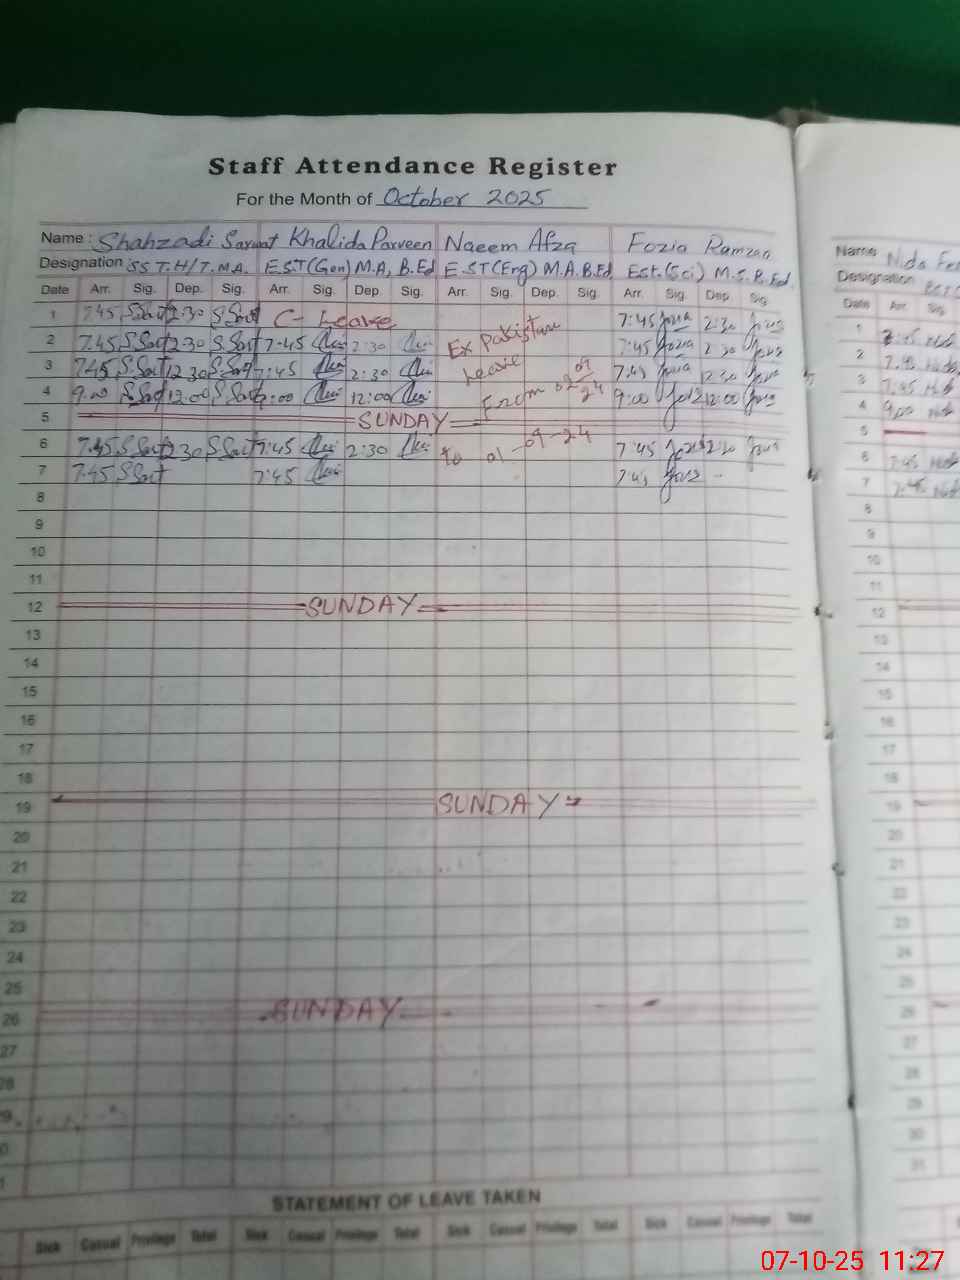 Staff Attendance Register
For the Month of October 2025
Name: Shahzadi Sarwat Khalida Parveen Naeem Afza Fozia Ramzan
Designation SST.H/T.M.A. E.S.T(Gen) M.A, B.Ed E.ST(Eng) M.A.B.Ed. Est.(Sci) M.S.B.Ed.
Date Arr. Sig. Dep. Sig. Arr. Sig. Dep. Sig. Arr. Sig. Dep. Sig. Arr. Sig. Dep. Sig.
1 7.45 2:30 C- Leave 7:45 2:30
2 7.45 2:30 7:45 2:30 Ex Pakistan 7:45 2:30
3 7.45 12:30 7:45 2:30 Leave 7:45 12:30
4 9.00 12:00 9:00 12:00 From 9:00 12:00
5 SUNDAY
6 7.45 2:30 7:45 2:30 to 01-09-24 7:45 2:30
7 7.45 7:45 7:45
8
9
10
11
12 SUNDAY
13
14
15
16
17
18
19 SUNDAY
20
21
22
23
24
25
26 SUNDAY
27
28
STATEMENT OF LEAVE TAKEN
Sick Casual Privilege Total Sick Casual Privilege Total Sick Casual Privilege Total Sick Casual Privilege Total
Name Nida
Designation
Date Arr. Sig.
1 7:45
2 7.45
3 7:45
4 9:00
5
6 7:45
7 7:45
8
9
10
11
12
13
14
15
16
17
18
19
20
21
22
23
24
25
26
27
28
29
30
31
07-10-25 11:27